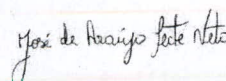 José de Araújo Leite Neto